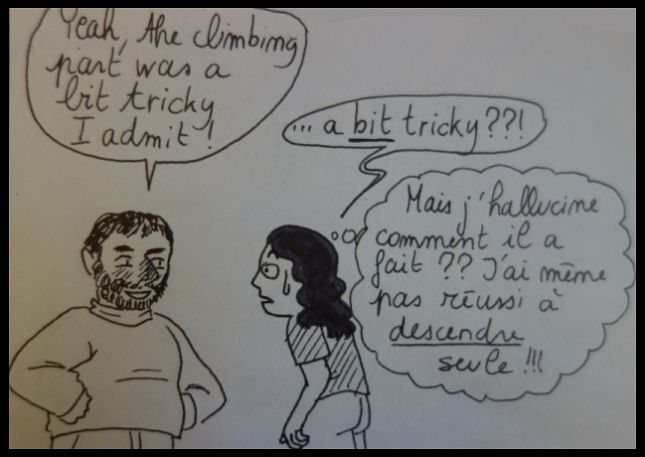 Yeah, the climbing
part was a
bit tricky
I admit !
... a bit tricky ??!
Mais j'hallucine
comment il a
fait ?? J'ai même
pas réussi à
descendre
seule !!!